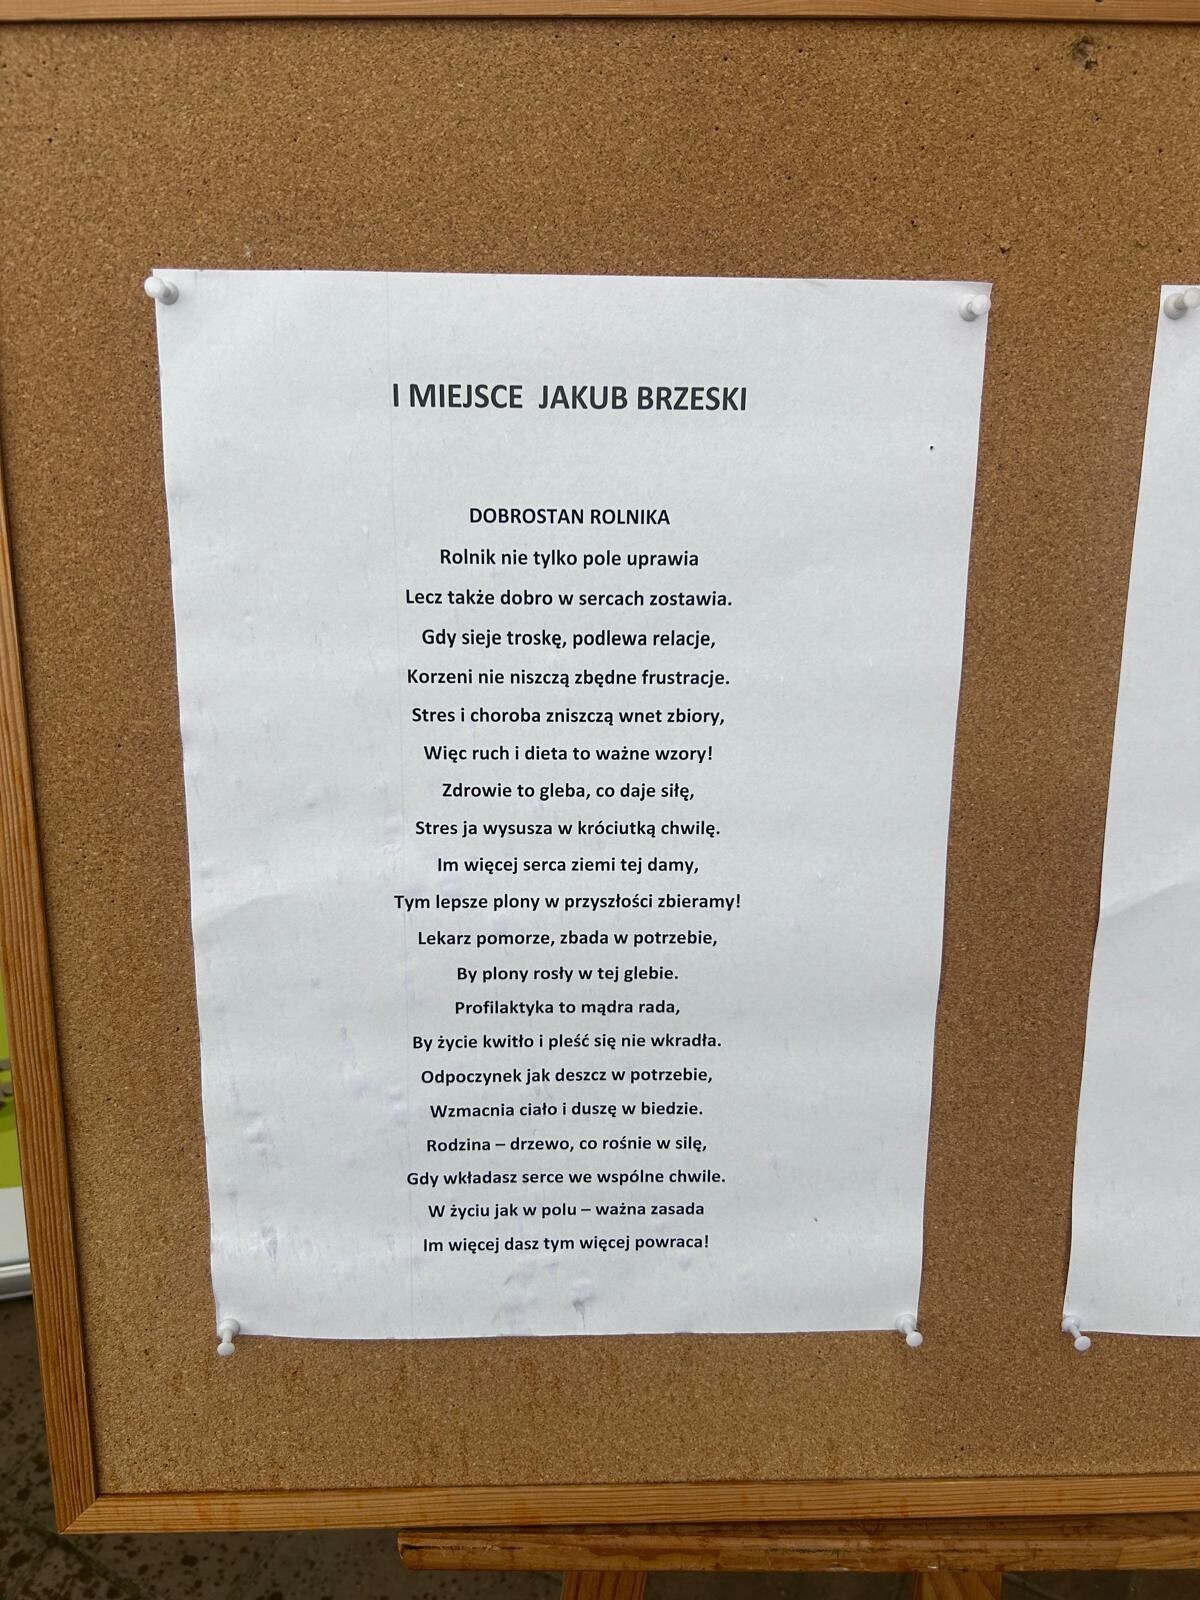 I MIEJSCE  JAKUB BRZESKI
DOBROSTAN ROLNIKA
Rolnik nie tylko pole uprawia
Lecz także dobro w sercach zostawia.
Gdy sieje troskę, podlewa relacje,
Korzeni nie niszczą zbędne frustracje.
Stres i choroba zniszczą wnet zbiory,
Więc ruch i dieta to ważne wzory!
Zdrowie to gleba, co daje siłę,
Stres ja wysusza w króciutką chwilę.
Im więcej serca ziemi tej damy,
Tym lepsze plony w przyszłości zbieramy!
Lekarz pomorze, zbada w potrzebie,
By plony rosły w tej glebie.
Profilaktyka to mądra rada,
By życie kwitło i pleść się nie wkradła.
Odpoczynek jak deszcz w potrzebie,
Wzmacnia ciało i duszę w biedzie.
Rodzina – drzewo, co rośnie w silę,
Gdy wkładasz serce we wspólne chwile.
W życiu jak w polu – ważna zasada
Im więcej dasz tym więcej powraca!